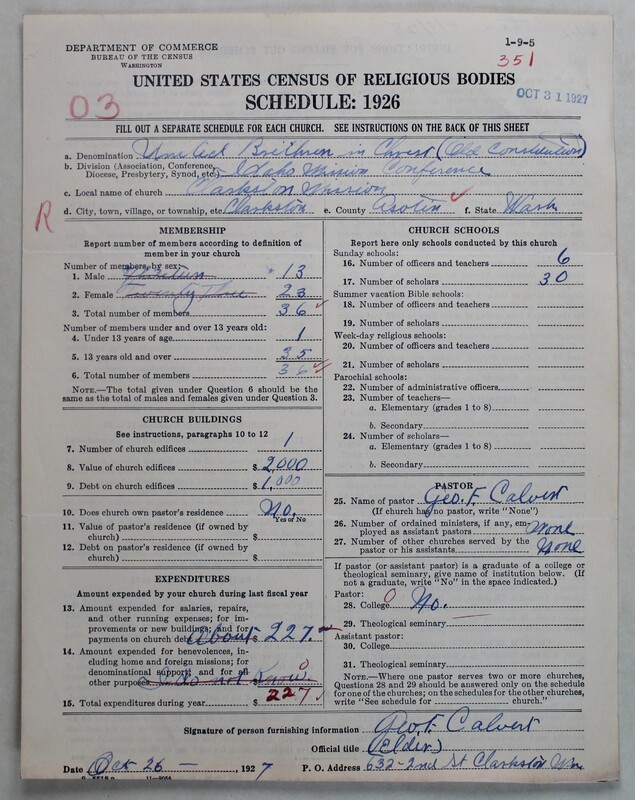 DEPARTMENT OF COMMERCE
BUREAU OF THE CENSUS
WASHINGTON
1-9-5
351
UNITED STATES CENSUS OF RELIGIOUS BODIES
SCHEDULE: 1926
03
OCT 31 1927
FILL OUT A SEPARATE SCHEDULE FOR EACH CHURCH. SEE INSTRUCTIONS ON THE BACK OF THIS SHEET
a. Denomination United Brethren in Christ (Old Constitution)
b. Division (Association, Conference, Diocese, Presbytery, Synod, etc.) Idaho Mission Conference
c. Local name of church Clarkston Mission
d. City, town, village, or township, etc. Clarkston e. County Asotin f. State Wash
R
MEMBERSHIP
Report number of members according to definition of member in your church
Number of members, by sex:
1. Male Thirteen 13
2. Female Twenty Three 23
3. Total number of members 36
Number of members under and over 13 years old:
4. Under 13 years of age 1
5. 13 years old and over 35
6. Total number of members 36
NOTE.—The total given under Question 6 should be same as the total of males and females given under Question 3.
CHURCH BUILDINGS
See instructions, paragraphs 10 to 12
7. Number of church edifices 1
8. Value of church edifices $ 2,000
9. Debt on church edifices $ 1,000
10. Does church own pastor's residence No.
Yes or No
11. Value of pastor's residence (if owned by church) $
12. Debt on pastor's residence (if owned by church) $
EXPENDITURES
Amount expended by your church during last fiscal year
13. Amount expended for salaries, repairs, and other running expenses; for improvements or new buildings; and for payments on church debt About $ 227.
14. Amount expended for benevolences, including home and foreign missions; for denominational support; and for all other purposes I do not Know. 0
15. Total expenditures during year $ 227
CHURCH SCHOOLS
Report here only schools conducted by this church
Sunday schools:
16. Number of officers and teachers 6
17. Number of scholars 30
Summer vacation Bible schools:
18. Number of officers and teachers
19. Number of scholars
Week-day religious schools:
20. Number of officers and teachers
21. Number of scholars
Parochial schools:
22. Number of administrative officers
23. Number of teachers—
a. Elementary (grades 1 to 8)
b. Secondary
24. Number of scholars—
a. Elementary (grades 1 to 8)
b. Secondary
PASTOR
25. Name of pastor Geo. F. Calvert
(If church has no pastor, write "None")
26. Number of ordained ministers, if any, employed as assistant pastors None
27. Number of other churches served by the pastor or his assistants None
If pastor (or assistant pastor) is a graduate of a college or theological seminary, give name of institution below. (If not a graduate, write "No" in the space indicated.)
Pastor: 0
28. College No.
29. Theological seminary
Assistant pastor:
30. College
31. Theological seminary
NOTE.—Where one pastor serves two or more churches, Questions 28 and 29 should be answered only on the schedule for one of the churches; on the schedules for the other churches, write "See schedule for ........ church."
Signature of person furnishing information Geo. F. Calvert
Official title (Elder)
Date Oct 26 — , 1927 P. O. Address 632-2nd St Clarkston Wn